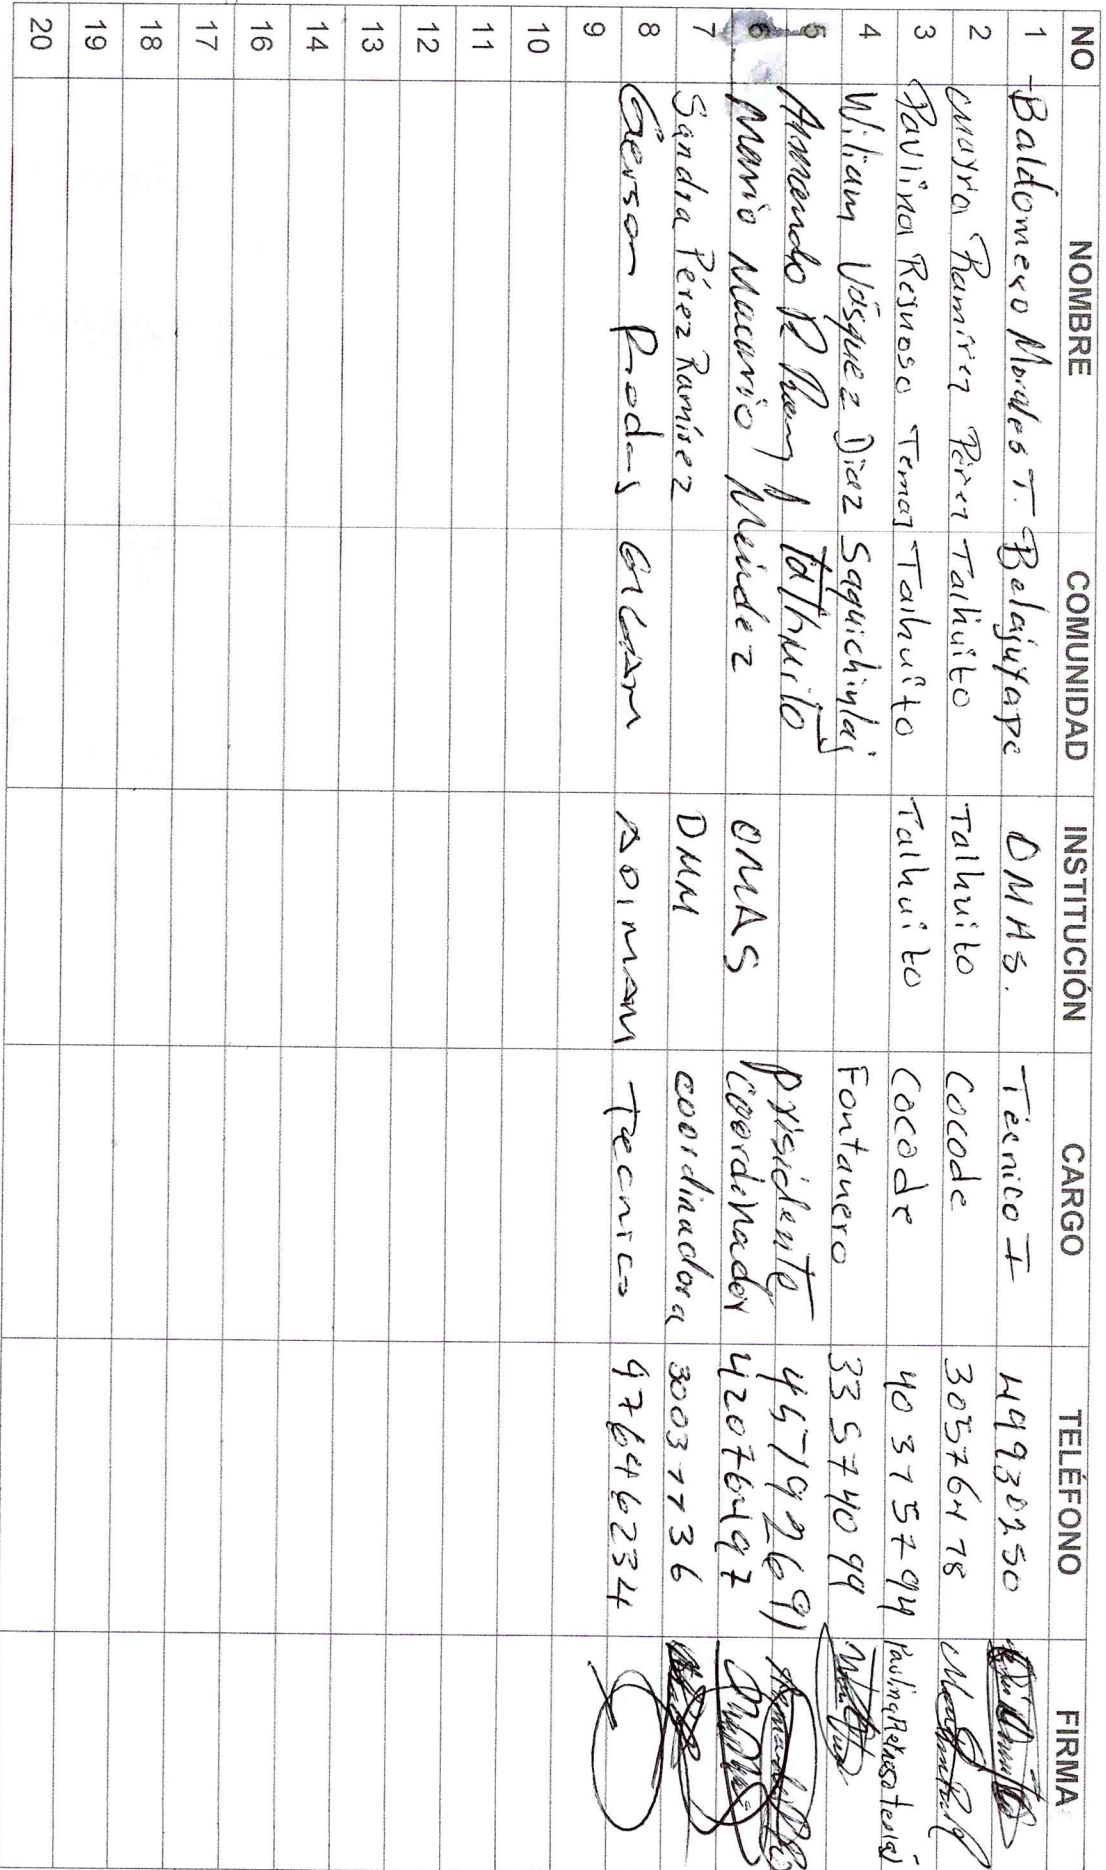 NO NOMBRE COMUNIDAD INSTITUCIÓN CARGO TELÉFONO FIRMA
1 Baldomero Morales T. Belajuyape OMAS. Técnico I 49930250
2 Mayra Ramirez Pérez Talhuito Talhuito Cocode 30576478
3 Paulina Reynoso Temaj Talhuito Talhuito Cocode 40375794 Paulina Reynoso Temaj
4 Wiliam Vásquez Díaz Saquichilaj Fontanero 33574099
5 Armando R Talhuito Presidente 45792691
6 Mario Macario Meindez OMAS Coordinador 42076497
7 Sandra Pérez Ramírez DMM coordinadora 30037736
8 Gerson Rodas ADIMAM Tecnico 97646234
9
10
11
12
13
14
16
17
18
19
20